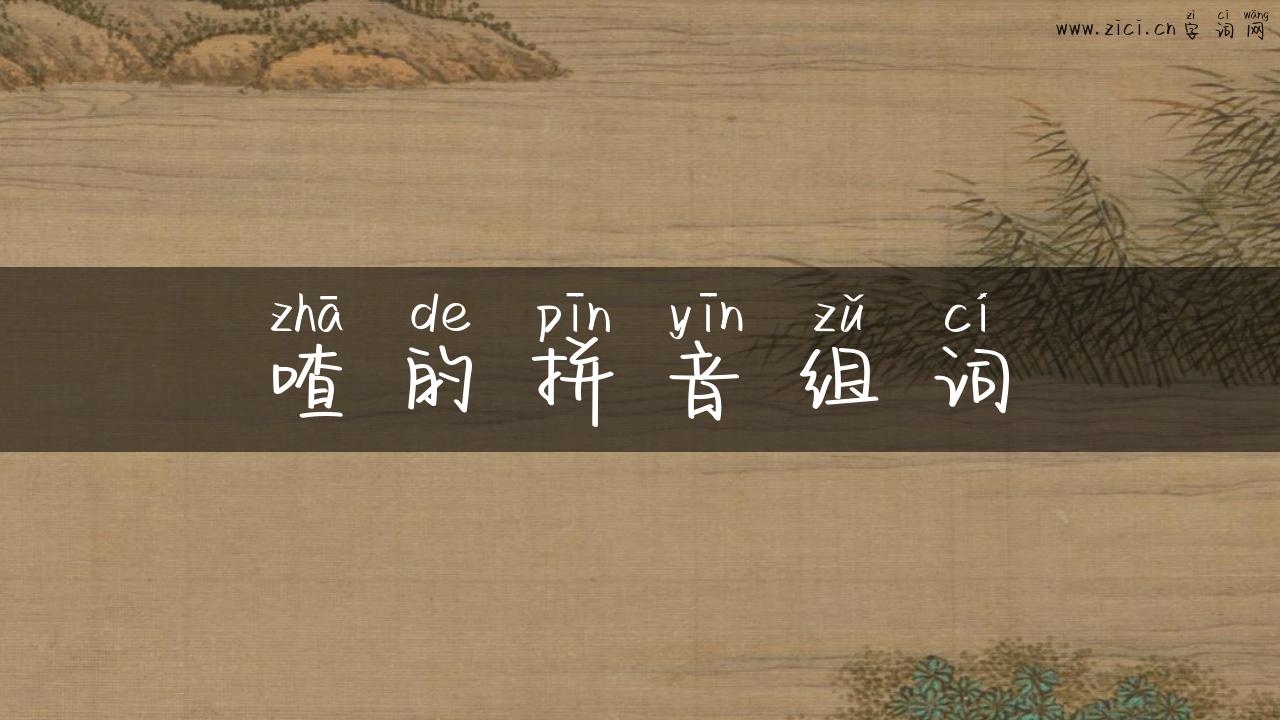 zì cí wǎng
www.zici.cn 字词网
zhā de pīn yīn zǔ cí
喳的拼音组词